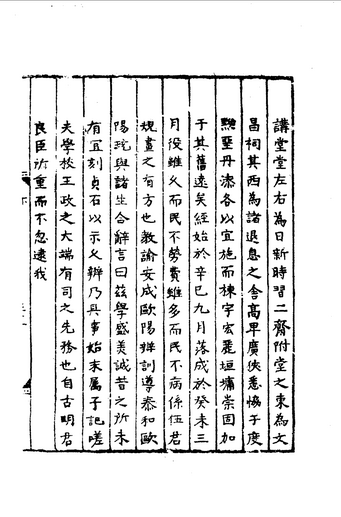 講堂堂左右為日新時習二齋附堂之東為文
昌祠其西為諸退息之舍高卑廣狹悉恊于度
黝堊丹漆各以宜施而棟宇宏麗垣墉崇固加
于其舊遠矣經始於辛巳九月落成於癸未三
月役雖久而民不勞費雖多而民不病係伍君
規畫之有方也教諭安成歐陽辨訓導泰和歐
陽琬與諸生合辭言曰茲學盛美誠昔之所未
有宜刻貞石以示久辨乃具事始末属予記嗟
夫學校王政之大端有司之先務也自古明君
良臣所重而不忽逮我